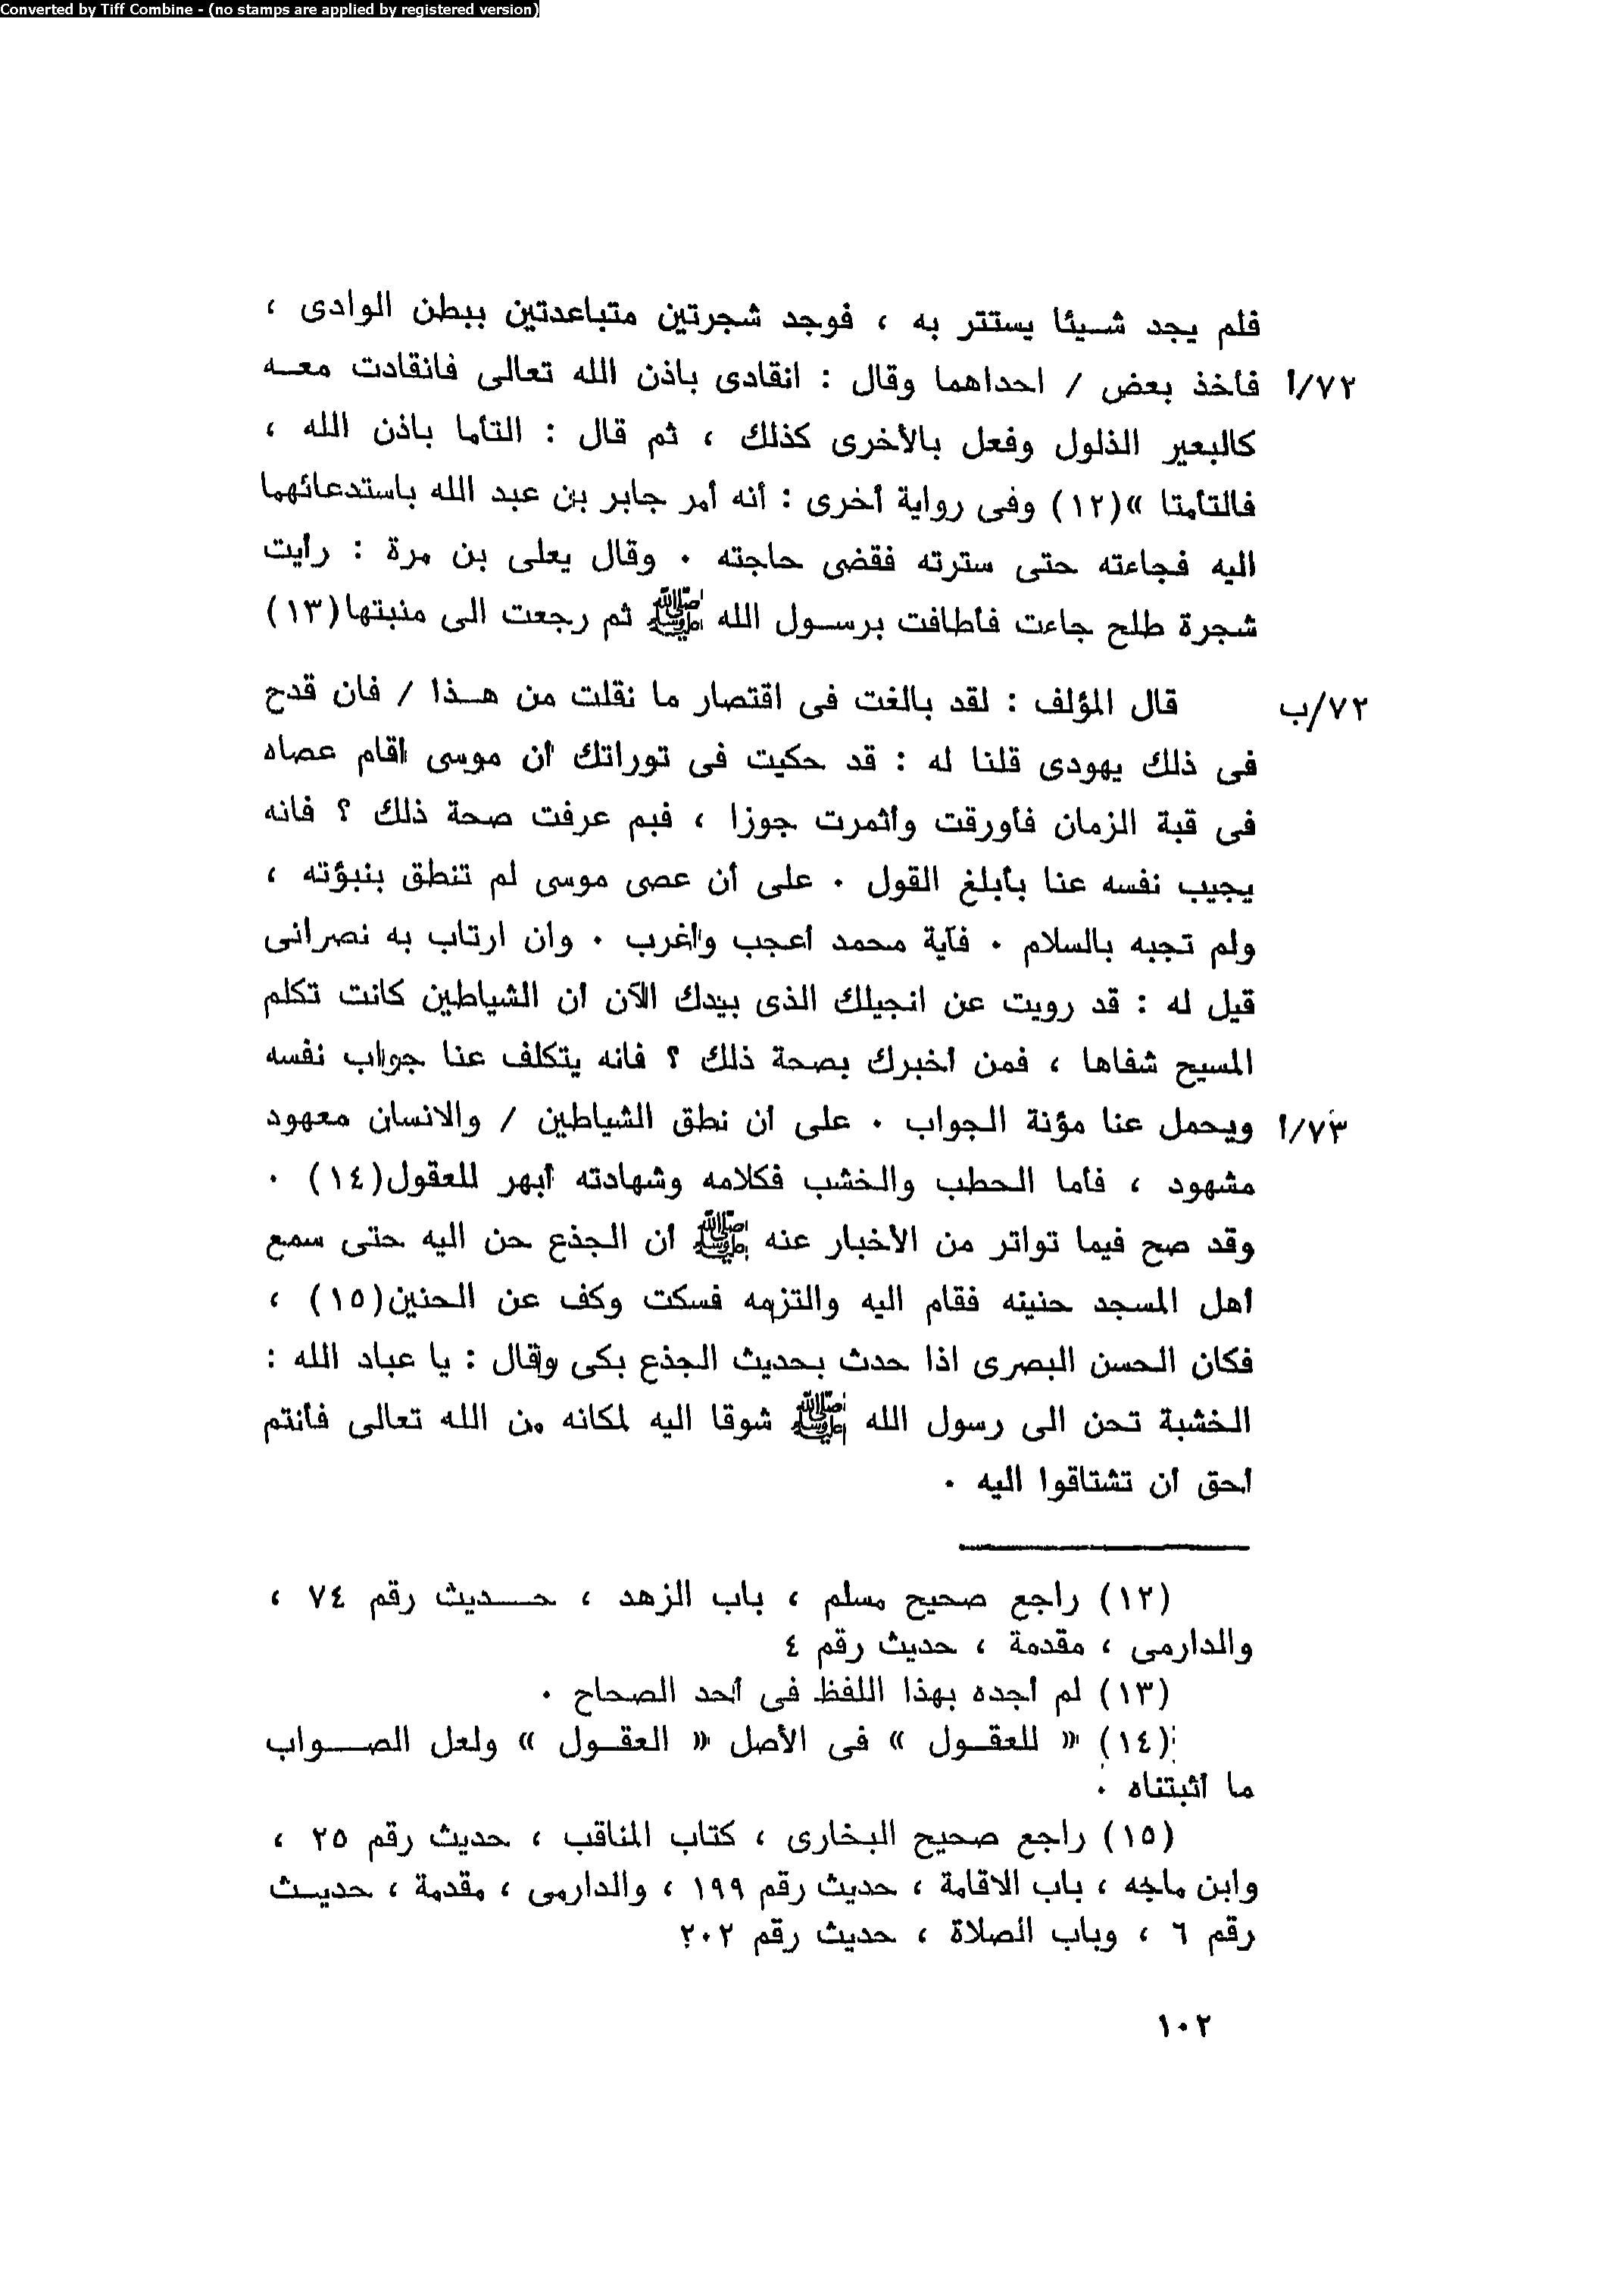 Converted by Tiff Combine - (no stamps are applied by registered version)
فلم يجد شيئا يستتر به ، فوجد شجرتين متباعدتين ببطن الوادى ،
٧٢/أ فأخذ بعض / احداهما وقال : انقادى باذن الله تعالى فانقادت معه
كالبعير الذلول وفعل بالأخرى كذلك ، ثم قال : التأما باذن الله ،
فالتأمتا »(١٢) وفى رواية أخرى : أنه أمر جابر بن عبد الله باستدعائهما
اليه فجاءته حتى سترته فقضى حاجته ٠ وقال يعلى بن مرة : رأيت
شجرة طلح جاءت فأطافت برسول الله ﷺ ثم رجعت الى منبتها(١٣)
٧٢/ب قال المؤلف : لقد بالغت فى اقتصار ما نقلت من هذا / فان قدح
فى ذلك يهودى قلنا له : قد حكيت فى توراتك أن موسى أقام عصاه
فى قبة الزمان فأورقت وأثمرت جوزا ، فبم عرفت صحة ذلك ؟ فانه
يجيب نفسه عنا بأبلغ القول ٠ على أن عصى موسى لم تنطق بنبؤته ،
ولم تجبه بالسلام ٠ فآية محمد أعجب وأغرب ٠ وان ارتاب به نصرانى
قيل له : قد رويت عن انجيلك الذى بيدك الآن أن الشياطين كانت تكلم
المسيح شفاها ، فمن أخبرك بصحة ذلك ؟ فانه يتكلف عنا جواب نفسه
٧٣/أ ويحمل عنا مؤنة الجواب ٠ على أن نطق الشياطين / والانسان معهود
مشهود ، فأما الحطب والخشب فكلامه وشهادته أبهر للعقول(١٤) ٠
وقد صح فيما تواتر من الأخبار عنه ﷺ أن الجذع حن اليه حتى سمع
أهل المسجد حنينه فقام اليه والتزمه فسكت وكف عن الحنين(١٥) ،
فكان الحسن البصرى اذا حدث بحديث الجذع بكى وقال : يا عباد الله :
الخشبة تحن الى رسول الله ﷺ شوقا اليه لمكانه من الله تعالى فأنتم
أحق أن تشتاقوا اليه ٠
(١٢) راجع صحيح مسلم ، باب الزهد ، حديث رقم ٧٤ ،
والدارمى ، مقدمة ، حديث رقم ٤
(١٣) لم أجده بهذا اللفظ فى أحد الصحاح ٠
(١٤) « للعقول » فى الأصل « العقول » ولعل الصواب
ما أثبتناه ٠
(١٥) راجع صحيح البخارى ، كتاب المناقب ، حديث رقم ٢٥ ،
وابن ماجه ، باب الاقامة ، حديث رقم ١٩٩ ، والدارمى ، مقدمة ، حديث
رقم ٦ ، وباب الصلاة ، حديث رقم ٢٠٢
١٠٢